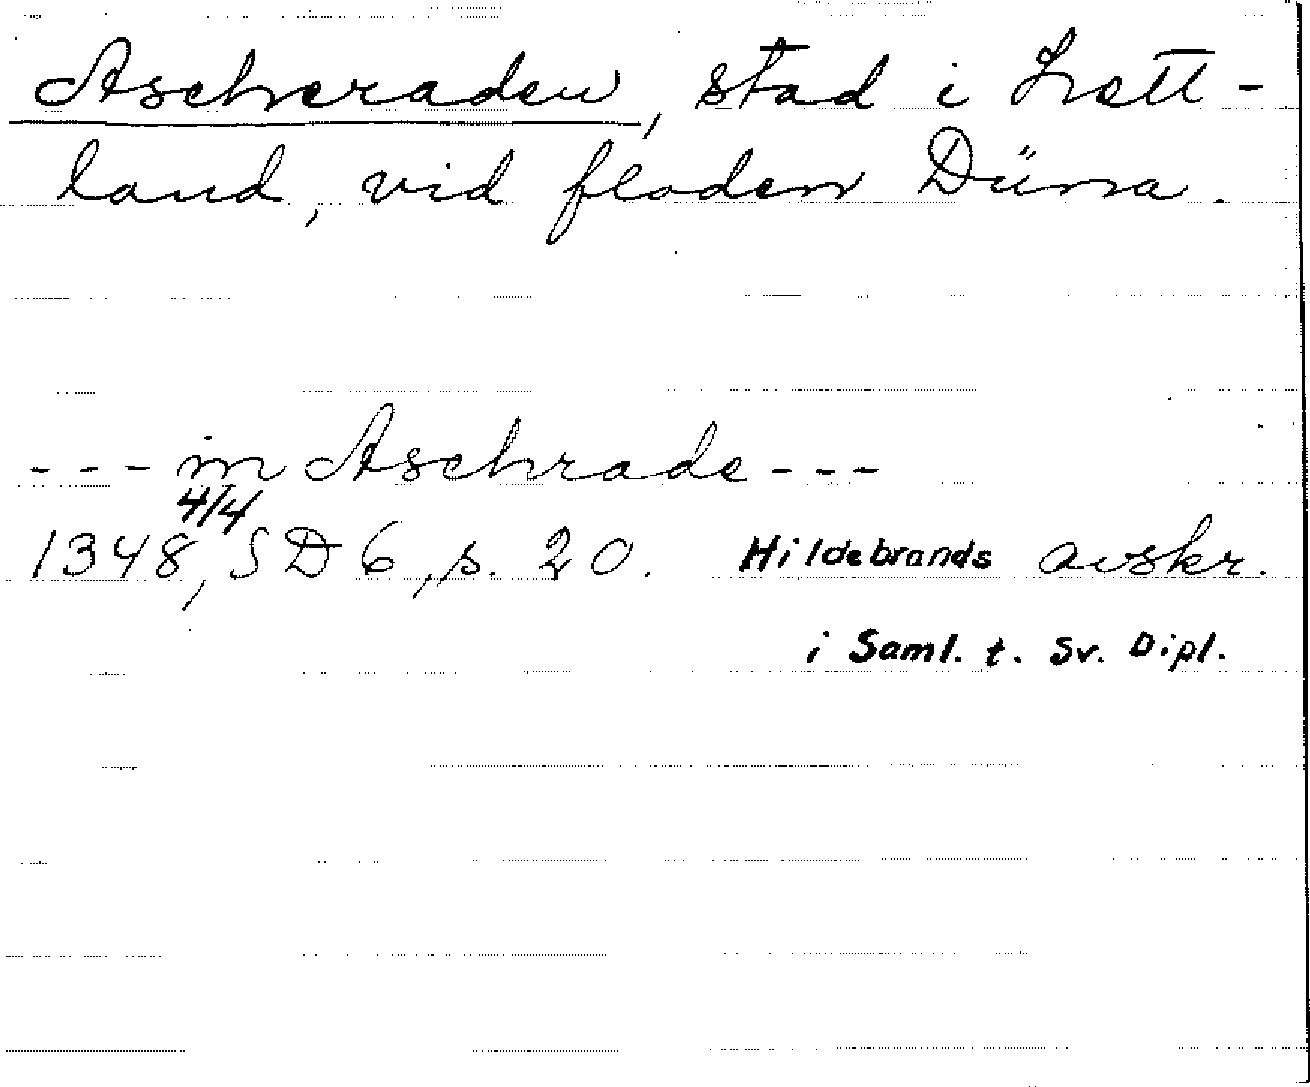 Ascheraden, stad i Lett-
land, vid floden Düna.
--- in Aschrade ---
1348 4/4, SD 6, s. 20. Hildebrands avskr.
i Saml. t. Sv. Dipl.